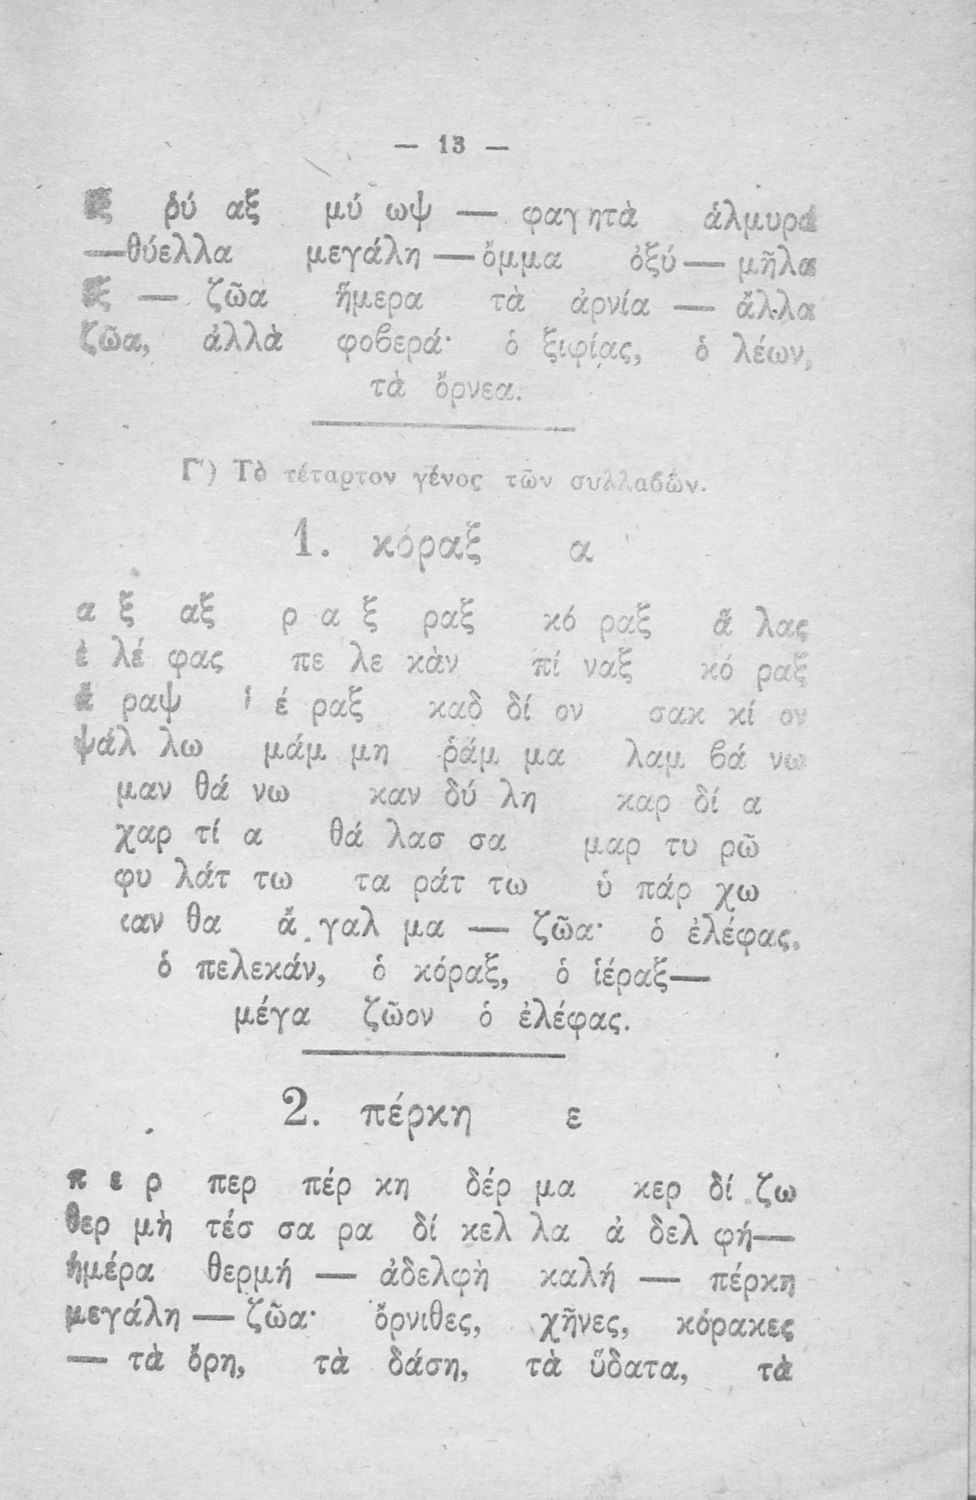 — 13 —
ρύ αξ μύ ωψ — φαγητὰ ἁλμυρά
—θύελλα μεγάλη — ὄμμα ὀξύ — μῆλα
— ζῶα ἥμερα τὰ ἀρνία — ἄλλα
ζῶα, ἀλλὰ φοβερά· ὁ ξιφίας, ὁ λέων,
τὰ ὄρνεα.
Γ') Τὸ τέταρτον γένος τῶν συλλαβῶν.
1. κόραξ α
α ξ αξ ρ α ξ ραξ κό ραξ ἅ λας
ἐ λέ φας πε λε κὰν πί ναξ κό ραξ
ἄ ραψ ἱ έ ραξ καδ δί ον σακ κί ον
ψάλ λω μάμ μη ῥάμ μα λαμ βά νω
μαν θά νω καν δύ λη καρ δί α
χαρ τί α θά λασ σα μαρ τυ ρῶ
φυ λάτ τω τα ράτ τω ὑ πάρ χω
καν θα ἄ γαλ μα — ζῶα· ὁ ἐλέφας,
ὁ πελεκάν, ὁ κόραξ, ὁ ἱέραξ—
μέγα ζῶον ὁ ἐλέφας.
2. πέρκη ε
π ε ρ περ πέρ κη δέρ μα κερ δί ζω
θερ μὴ τέσ σα ρα δί κελ λα ἀ δελ φή—
ἡμέρα θερμή — ἀδελφὴ καλή — πέρκη
μεγάλη — ζῶα· ὄρνιθες, χῆνες, κόρακες
— τὰ ὄρη, τὰ δάση, τὰ ὕδατα, τὰ